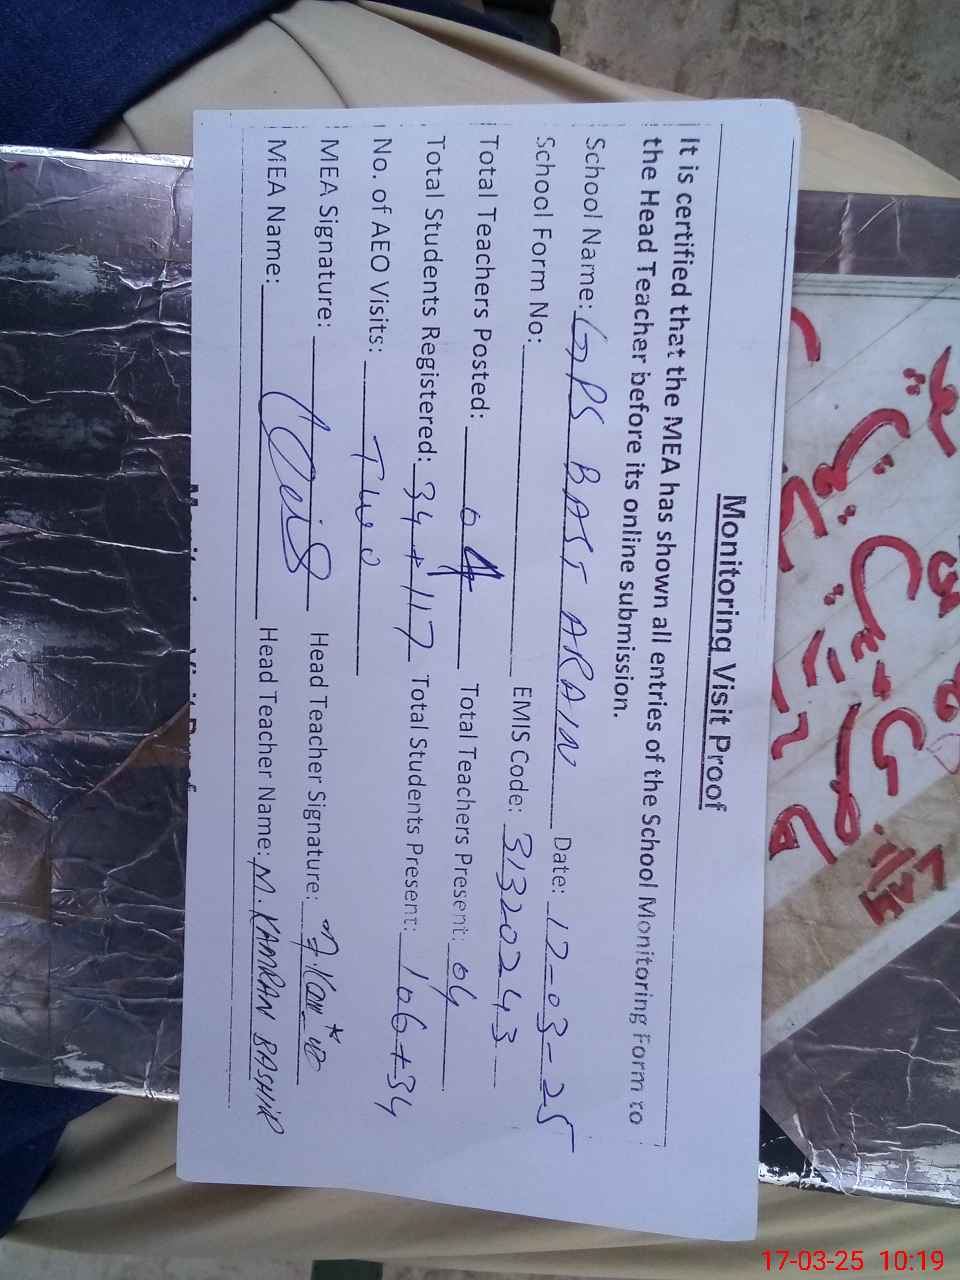 Monitoring Visit Proof
It is certified that the MEA has shown all entries of the School Monitoring Form to
the Head Teacher before its online submission.
School Name: GPS BASTI ARAIN Date: 12-03-25
School Form No: EMIS Code: 31320243
Total Teachers Posted: 04 Total Teachers Present: 04
Total Students Registered: 34+117 Total Students Present: 106+34
No. of AEO Visits: Two
MEA Signature: Head Teacher Signature:
MEA Name: Head Teacher Name: M. KAMRAN BASHIR
17-03-25 10:19